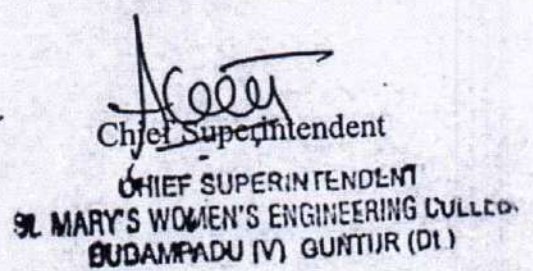 Chief Superintendent
CHIEF SUPERINTENDENT
St. MARY'S WOMEN'S ENGINEERING COLLEG.
BUDAMPADU (V) GUNTUR (Dt.)